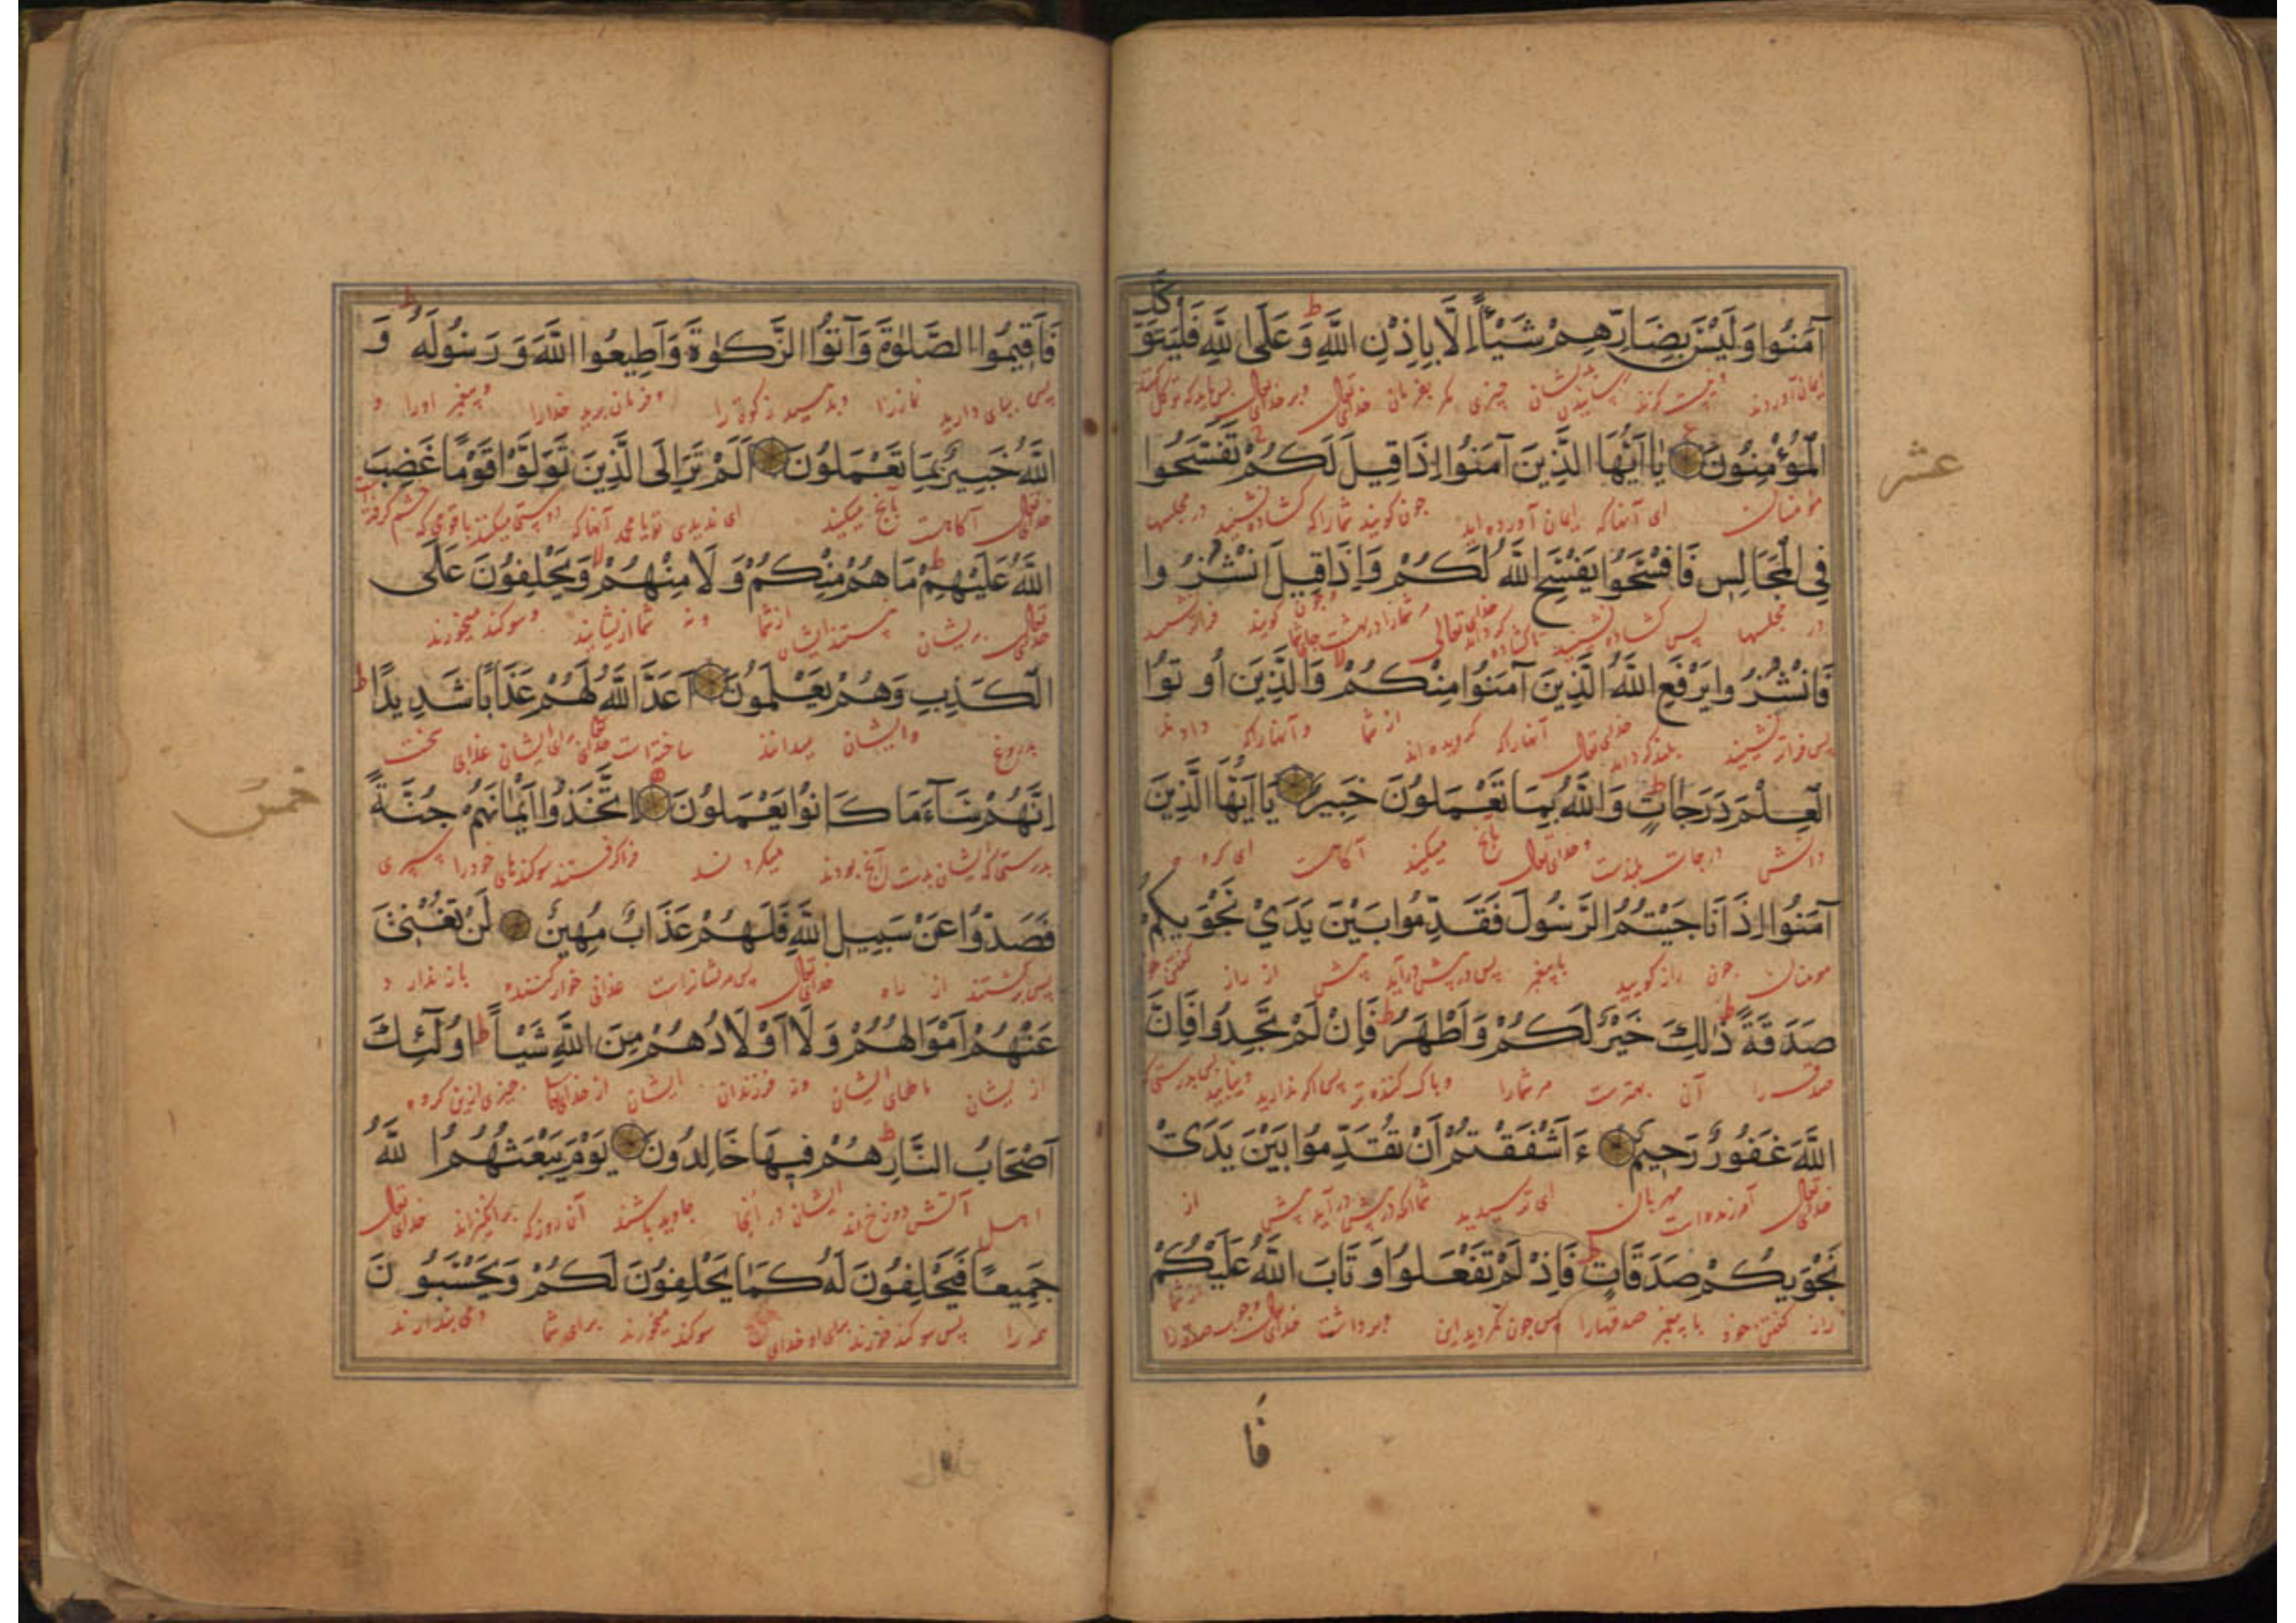 آمَنُوا وَلَيْسَ بِضَارِّهِمْ شَيْئًا اِلَّا بِاِذْنِ اللّٰهِ ط وَعَلَى اللّٰهِ فَلْيَتَوَكَّلِ
ایمان آوردند چیزی مگر بفرمان خدای تعالی
الْمُؤْمِنُونَ يَا اَيُّهَا الَّذِينَ آمَنُوا اِذَا قِيلَ لَكُمْ تَفَسَّحُوا
مؤمنان ای آنها که ایمان آورده اید چون گویند شما را که گشاده نشینید در مجلسها
عشر
فِى الْمَجَالِسِ فَافْسَحُوا يَفْسَحِ اللّٰهُ لَكُمْ وَاِذَا قِيلَ انْشُزُوا
در مجلسها پس گشاده نشینید خدای تعالی گویند
فَانْشُزُوا يَرْفَعِ اللّٰهُ الَّذِينَ آمَنُوا مِنْكُمْ لا وَالَّذِينَ اُوتُوا
بلند گرداند خدای تعالی آنها را که گرویده اند از شما و آنها را که دادند
الْعِلْمَ دَرَجَاتٍ ط وَاللّٰهُ بِمَا تَعْمَلُونَ خَبِيرٌ يَا اَيُّهَا الَّذِينَ
دانش درجات بلندست و خدای تعالی بآنچ میکنید آگاهست ای گروه
آمَنُوا اِذَا نَاجَيْتُمُ الرَّسُولَ فَقَدِّمُوا بَيْنَ يَدَيْ نَجْوَيكُمْ
مومنان چون راز گویید با پیغمبر پس در پیش درآید پیش از راز
صَدَقَةً ط ذٰلِكَ خَيْرٌ لَكُمْ وَاَطْهَرُ ط فَاِنْ لَمْ تَجِدُوا فَاِنَّ
صدقه را آن بهترست مر شما را و پاک کننده تر پس اگر ندارید
اللّٰهَ غَفُورٌ رَحِيمٌ ءَاَشْفَقْتُمْ اَنْ تُقَدِّمُوا بَيْنَ يَدَىْ
خدای تعالی آمرزنده است مهربان ای ترسیدید پیش از
نَجْوَيكُمْ صَدَقَاتٍ ط فَاِذْ لَمْ تَفْعَلُوا وَتَابَ اللّٰهُ عَلَيْكُمْ
راز گفتن خود با پیغمبر صدقها را پس چون نکردید این
فَا
فَاَقِيمُوا الصَّلٰوةَ وَآتُوا الزَّكٰوةَ وَاَطِيعُوا اللّٰهَ وَرَسُولَهُ ط وَ
پس بپای دارید نماز را و بدهید زکوة را و فرمان برید خدا را و پیغمبر او را و
اللّٰهُ خَبِيرٌ بِمَا تَعْمَلُونَ اَلَمْ تَرَ اِلَى الَّذِينَ تَوَلَّوْا قَوْمًا غَضِبَ
خدای تعالی آگاهست بآنچ میکنید ای ندیدی تو یا محمد آنها که دوستی میکنند با قومی که خشم گرفت
اللّٰهُ عَلَيْهِمْ ط مَا هُمْ مِنْكُمْ وَلَا مِنْهُمْ لا وَيَحْلِفُونَ عَلَى
خدای تعالی بریشان از شما و نه شما ازیشانید و سوگند میخورند
الْكَذِبِ وَهُمْ يَعْلَمُونَ اَعَدَّ اللّٰهُ لَهُمْ عَذَابًا شَدِيدًا ط
بدروغ و ایشان میدانند ساخته است خدای برای ایشان عذابی سخت
اِنَّهُمْ سَآءَ مَا كَانُوا يَعْمَلُونَ اِتَّخَذُوا اَيْمَانَهُمْ جُنَّةً
بدرستی که ایشان بدست آنچ بودند میکردند فرا گرفتند سوگندهای خود را سپری
خمس
فَصَدُّوا عَنْ سَبِيلِ اللّٰهِ فَلَهُمْ عَذَابٌ مُهِينٌ لَنْ تُغْنِىَ
از راه خدای تعالی پس مریشانراست عذابی خوار کننده باز ندارد
عَنْهُمْ اَمْوَالُهُمْ وَلَا اَوْلَادُهُمْ مِنَ اللّٰهِ شَيْـًٔا ط اُولٰٓئِكَ
از یشان مالهای ایشان و نه فرزندان ایشان از خدای چیزی این گروه
اَصْحَابُ النَّارِ ط هُمْ فِيهَا خَالِدُونَ يَوْمَ يَبْعَثُهُمُ اللّٰهُ
اهل آتش دوزخ اند ایشان در آنجا جاوید باشند آن روز که برانگیزاند خدای تعالی
جَمِيعًا فَيَحْلِفُونَ لَهُ كَمَا يَحْلِفُونَ لَكُمْ وَيَحْسَبُونَ
همه را پس سوگند خورند برای او خدای سوگند میخورند برای شما و می پندارند